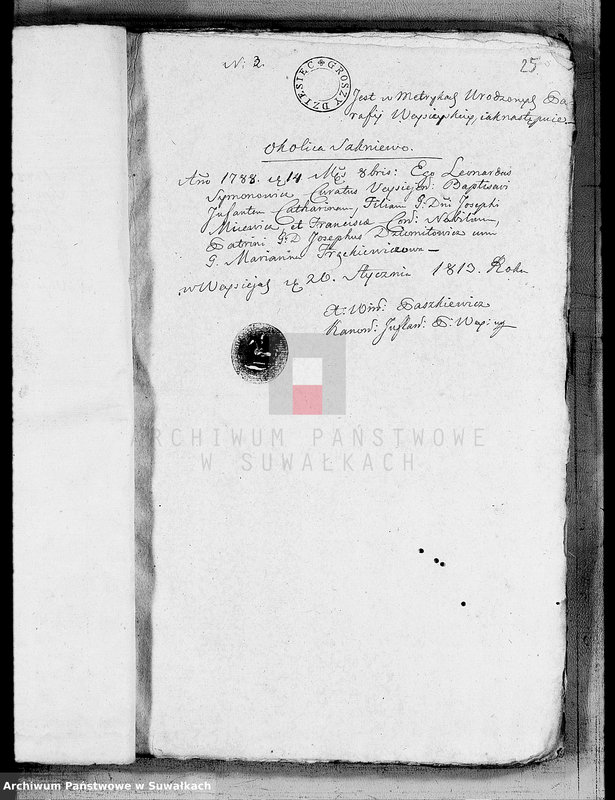 N: 2.
25
DZIESIĘĆ GROSZY
Jest w Metrykach Urodzonych Pa
rafij Weysieyskiey iak następuie
Okolica Sakniewo.
Año 1788. d 14 Mẽs 8bris: Ego Leonardus
Symonowicz Curatus Veysiej: Baptisavi
Infantem Catharinam, Filiam G: Dni Josephi
et Francisca Con: Nobilium,
Patrini G: D Josephus Dziemitowicz cum
G. Marianna
w Weysiejach d 26. Stycznia 1813. Roku
X: Win: Paszkiewicz
Kanon: P: Wey:
ARCHIWUM PAŃSTWOWE
W SUWAŁKACH
Archiwum Państwowe w Suwałkach